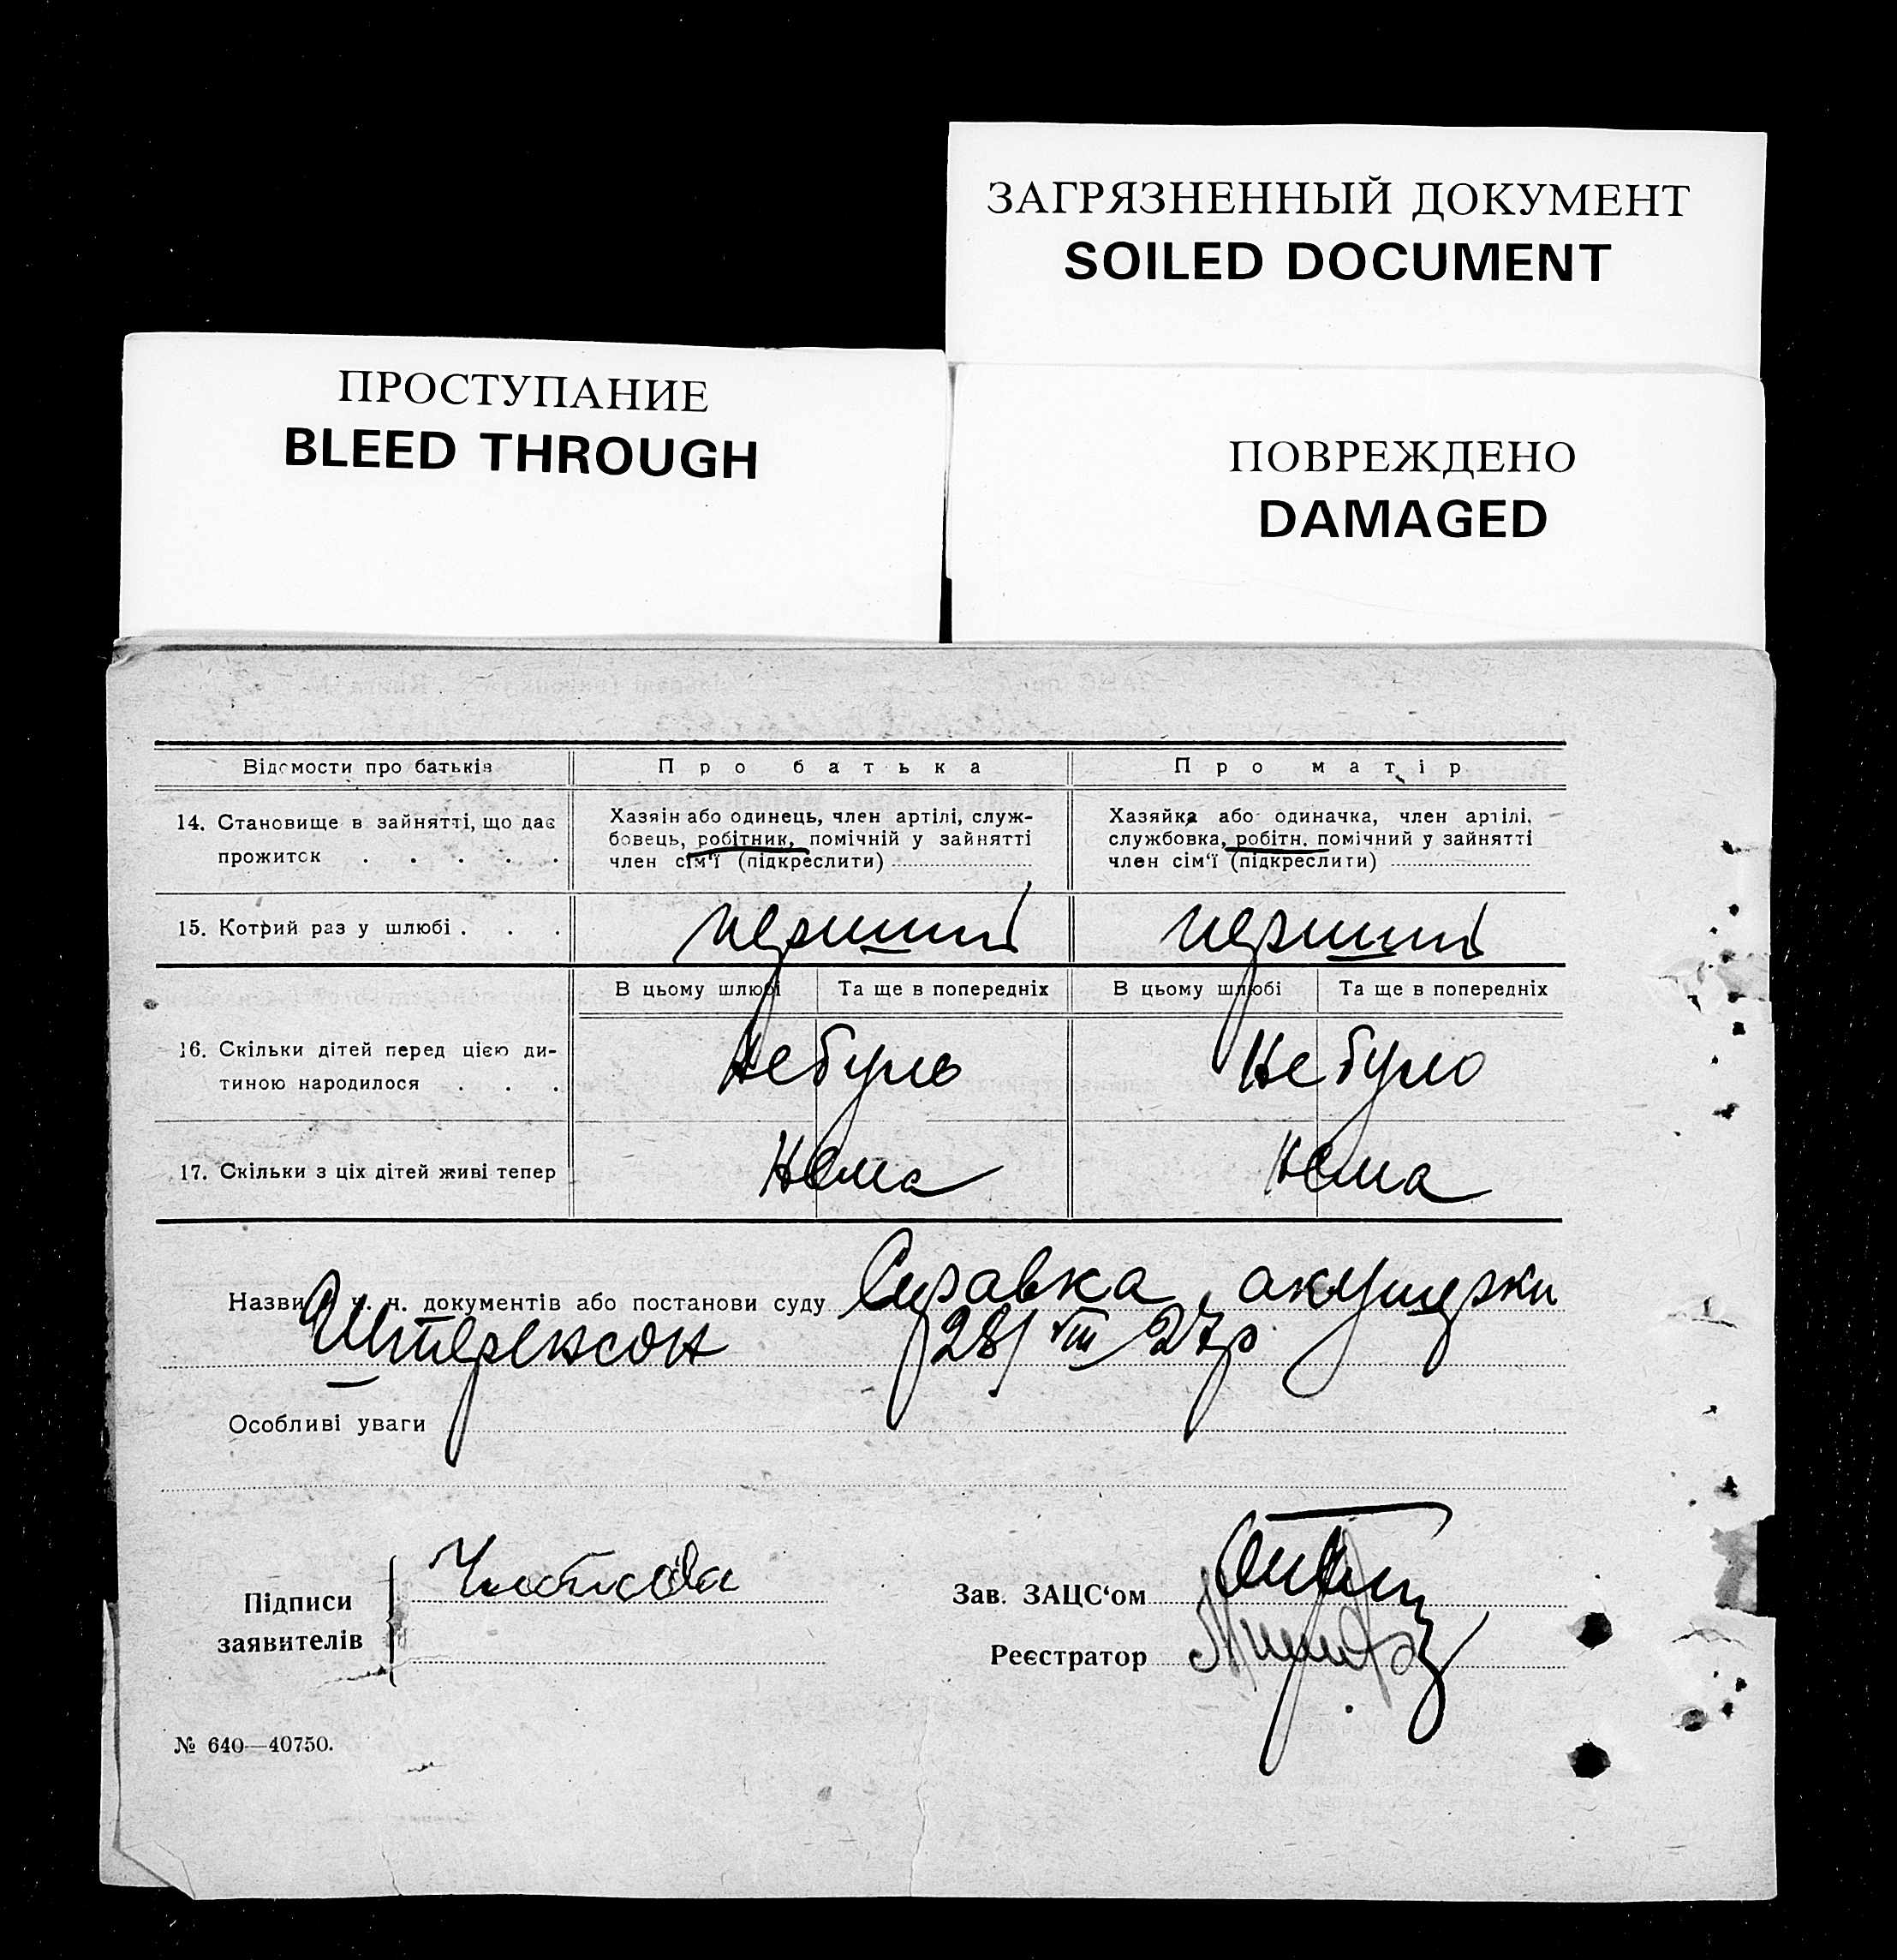 ЗАГРЯЗНЕННЫЙ ДОКУМЕНТ
SOILED DOCUMENT
ПРОСТУПАНИЕ
BLEED THROUGH
ПОВРЕЖДЕНО
DAMAGED
Відомости про батьків Про батька Про матір
14. Становище в зайнятті, що дає
прожиток . . . . .
Хазяїн або одинець, член артілі, служ-
бовець, робітник, помічній у зайнятті
член сім'ї (підкреслити)
Хазяйка або одиначка, член артілі,
службовка, робітн. помічний у зайнятті
член сім'ї (підкреслити)
15. Котрий раз у шлюбі . . . перший перший
В цьому шлюбі Та ще в попередніх В цьому шлюбі Та ще в попередніх
16. Скільки дітей перед цією ди-
тиною народилося . . .
Не було Не було
17. Скільки з ціх дітей живі тепер Нема Нема
Назви й ч. ч. документів або постанови суду Справка акушерки
Штеренсон 28/VIII 27р.
Особливі уваги
Підписи
заявителів
Зав. ЗАЦС'ом
Реєстратор
№ 640—40750.